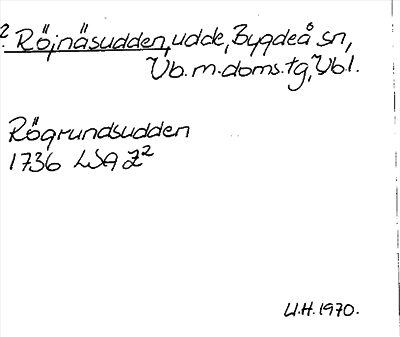 2. Röjnäsudden, udde, Bygdeå sn,
Vb. m. doms. tg, Vbl.
Rögrundsudden
1736 LSA Z²
U.H. 1970.